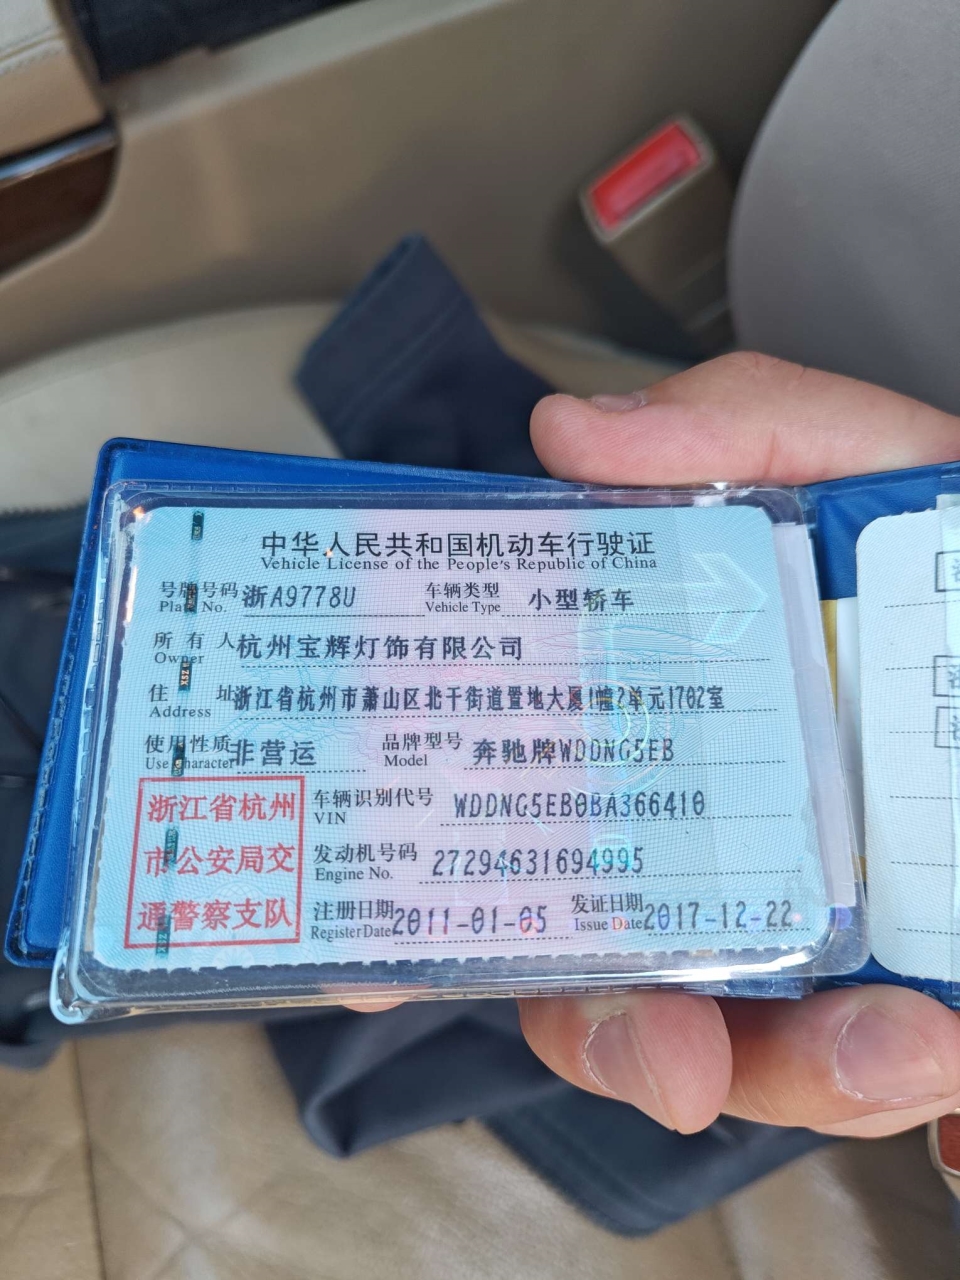 中华人民共和国机动车行驶证
Vehicle License of the People's Republic of China
号牌号码 浙A9778U 车辆类型 小型轿车
Plate No. Vehicle Type
所有人 杭州宝辉灯饰有限公司
Owner
住址 浙江省杭州市萧山区北干街道置地大厦1幢2单元1702室
Address
使用性质 非营运 品牌型号 奔驰牌WDDNG5EB
Use Character Model
浙江省杭州 车辆识别代号 WDDNG5EB0BA366410
VIN
市公安局交 发动机号码 27294631694995
Engine No.
通警察支队 注册日期 2011-01-05 发证日期 2017-12-22
Register Date Issue Date